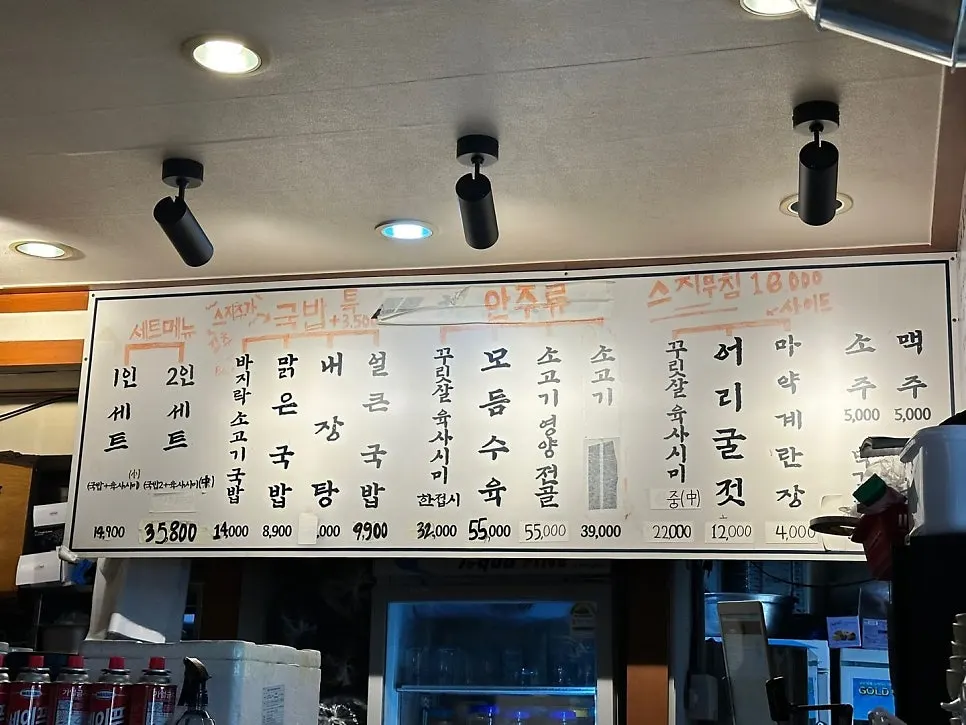 세트메뉴
1인세트
(국밥+육사시미)(小)
19,900
2인세트
(국밥2+육사시미(中)
35,800
스지추가
국밥 특
+3.500
바지락소고기국밥
14,000
맑은국밥
8,900
내장탕
,000
얼큰국밥
9,900
안주류
꾸릿살육사시미
한접시
32,000
모듬수육
55,000
소고기영양전골
55,000
소고기
39,000
스지무침 18000
사이드
꾸릿살육사시미
중(中)
22000
어리굴젓
12,000
마약계란장
4,000
소주
5,000
맥주
5,000
GOLD